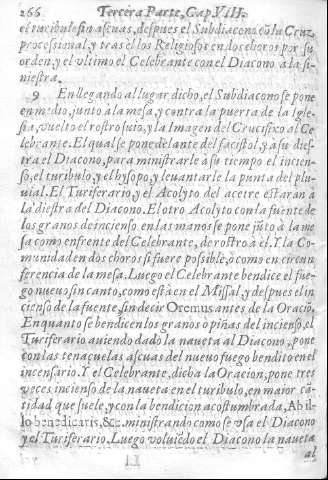 266 Tercera Parte, Cap. VIII.
el turibulo sin ascuas, despues el Subdiacono cõ la Cruz
processional, y tras ellos los Religiosos en dos choros por su
orden, y el vltimo el Celebrante con el Diacono à la si-
niestra.
9 En llegando al lugar dicho, el Subdiacono se pone
en medio, junto à la mesa, y contra la puerta de la Igle-
sia, vuelto el rostro suio, y la Imagen del Crucifixo al Ce
lebrante. El qual se pone delante del facistol, y à su dies-
tra el Diacono, para ministrarle à su tiempo el incien-
so, el turibulo, y el hysopo, y leuantarle la punta del plu-
uial. El Turiferario, y el Acolyto del acetre estaràn à
la diestra del Diacono. El otro Acolyto con la fuente de
los granos de incienso en las manos se pone jũto à la me
sa como enfrente del Celebrante, de rostro à el. Y la Co-
munidad en dos choros si fuere possible, ò como en circun
ferencia de la mesa. Luego el Celebrante bendice el fue-
go nueuo sin canto, como està en el Missal, y despues el in
cienso de la fuente, sin decir Oremus antes de la Oraciõ,
Enquanto se bendicen los granos o piñas del incienso, el
Turiferario auiendo dado la naueta al Diacono, pone
con las tenaçuelas ascuas del nueuo fuego bendito en el
incensario. Y el Celebrante, dicha la Oracion, pone tres
veces incienso de la naueta en el turibulo, en maior cã-
tidad que suele, y con la bendicion acostumbrada, Ab il-
lo benedicaris, &c. ministrando como se vsa el Diacono
y el Turiferario. Luego voluiẽdo el Diacono la naueta
al